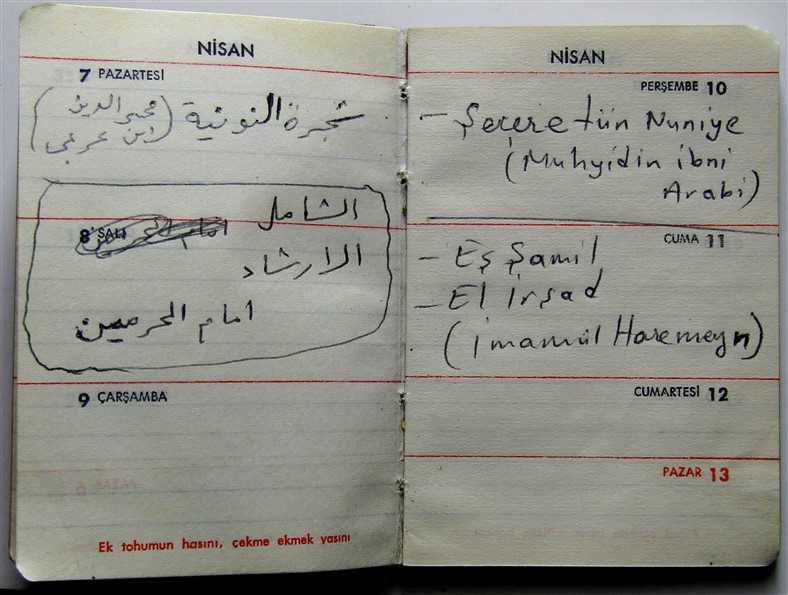 NİSAN
7 PAZARTESİ
شجرة النونية (محيى الدين
ابن عربي)
الشامل
8 SALI
امام الحرمين
الارشاد
امام الحرمين
9 ÇARŞAMBA
Ek tohumun hasını, çekme ekmek yasını
NİSAN
PERŞEMBE 10
- Şecere tün Nuniye
(Muhyidin ibni
Arabi)
CUMA 11
- Eş Şamil
- El irşad
(imamül Haremeyn)
CUMARTESİ 12
PAZAR 13